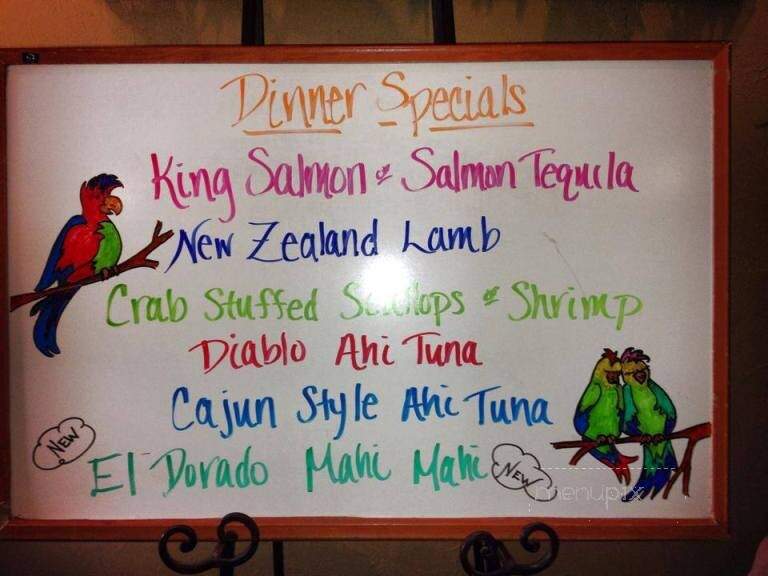 Dinner Specials
King Salmon & Salmon Tequila
New Zealand Lamb
Crab Stuffed Scallops & Shrimp
Diablo Ahi Tuna
Cajun Style Ahi Tuna
NEW
El Dorado Mahi Mahi
NEW
menupix